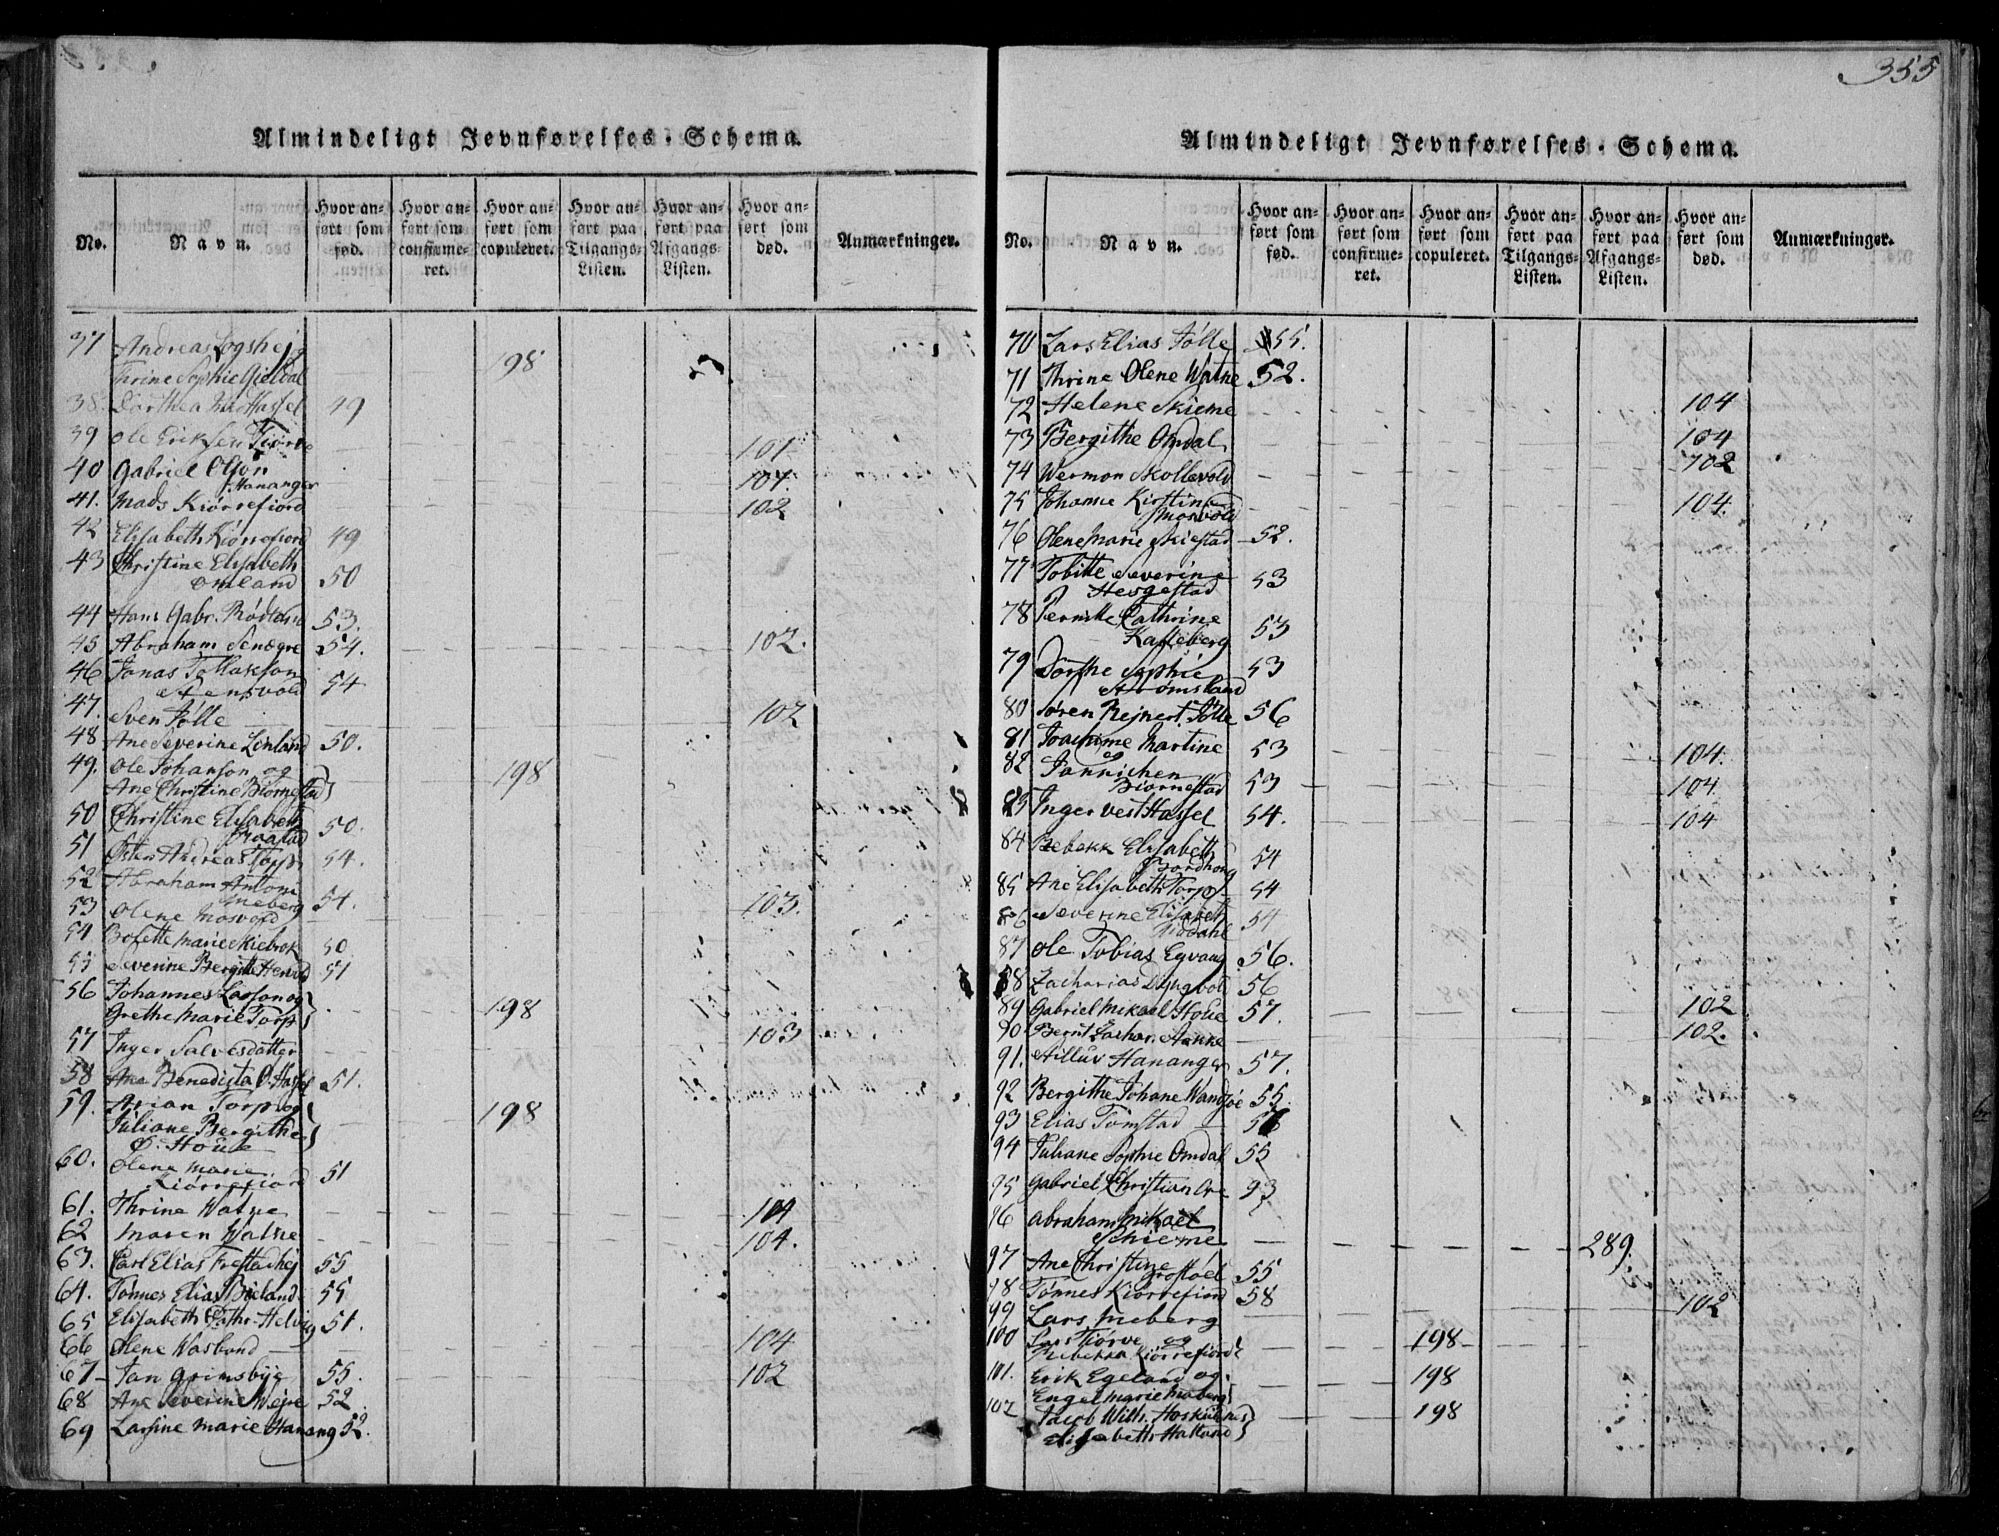 355
Almindeligt Jevnførelses-Schema.
No.
Navn.
Hvor anført som fød.
Hvor anført som confirmeret.
Hvor anført som copuleret.
Hvor anført paa Tilgangs-Listen.
Hvor anført paa Afgangs-Listen.
Hvor anført som død.
Anmærkninger.
37 Andreas Logshej
Thrine Sophie Gieldal 198
38. Dorthea Hassel 49
39 Ole Eriksen Tiørve 101
40 Gabriel Olson
Hananger 104.
41. Mads Kiørrefiord 102
42 Elisabeth Kiørrefiord 49
43 Christine Elisabeth
Omland 50
44 Hans Gabr. Rødland 53.
45 Abraham Senøgre 54. 102.
46 Jonas Tollakson
Stensvold 54
47. Sven Jølle 102
48 Ane Severine Lenland 50.
49. Ole Johanson og
Ane Christine Biørnestad } 198
50 Christine Elisabeth
Braastad 50.
51 Østen Andreas Torp 54.
52 Abraham Antoni
Meberg 54.
53 Olene Mosvold 103.
54 Bolette Marie Skiebrok 50
55 Severine Bergitte Hervold 51
56 Johannes Larson og
Grethe Marie Torp } 198
57 Inger Salvesdatter 103
58 Ane Benedicta O. Hassel 51.
59. Arian Torp og
Juliane Bergithe
Ø. Houe } 198
60. Olene Marie
Kiørrefiord 51
61. Thrine Watne 104
62 Maren Watne 104.
63. Carl Elias Frestadhej 55
64. Tønnes Elias Bieland 55
65 Elisabeth Cathr. Helvig 51.
66 Olene Wasbond 104
67 Jan Grimsbye 55. 102
68 Ane Severine Wejre 52
69 Larsine Marie Hanang 52.
Almindeligt Jevnførelses-Schema.
No.
Navn.
Hvor anført som fød.
Hvor anført som confirmeret.
Hvor anført som copuleret.
Hvor anført paa Tilgangs-Listen.
Hvor anført paa Afgangs-Listen.
Hvor anført som død.
Anmærkninger.
70 Lars Elias Jølle 55.
71 Thrine Olene Watne 52.
72 Helene Skieme 104
73 Bergithe Omdal 104
74 Wermon Skollevold 102
75 Johanne Kirstine
Mosvold 104.
76 Olene Marie Skiestad 52.
77 Tobitte Severine
Hesgestad 53
78 Pernille Cathrine
Kalleberg 53
79 Dorthe Sophie
Strømsland 53
80 Søren Rejnert Jølle 56
81 Joachime Martine 53 104.
82 og Jannichen
Biørnestad 53 104
83 Inger Vest Hassel 54. 104
84 Rebekk Elisabeth
Bordhong 54
85 Ane Elisabeth Torp 54
86 Severine Elisabeth
54
87 Ole Tobias Egvang 56.
88 Zacharias Dyngvoll 56
89 Gabriel Mikael Houe 57. 102
90 Bernt Zachar. Aanke 102.
91. Sillus Hananger 57.
92 Bergithe Johane Wandsøe 55.
93 Elias Tomstad 56
94 Juliane Sophie Omdal 55
95 Gabriel Christian Ore 93
96 Abraham Mikael
Schieme 289.
97 Ane Christine
Grostøel 55
98 Tønnes Kiørrefiord 58
99 Lars Meberg 102
100 Lars Tiørve og
Rebekka Kiørrefiord } 198
101. Erik Egeland og
Engel Marie Meberg } 198
102 Jacob Wilh. Haskilnes
Elisabeth Halland } 198